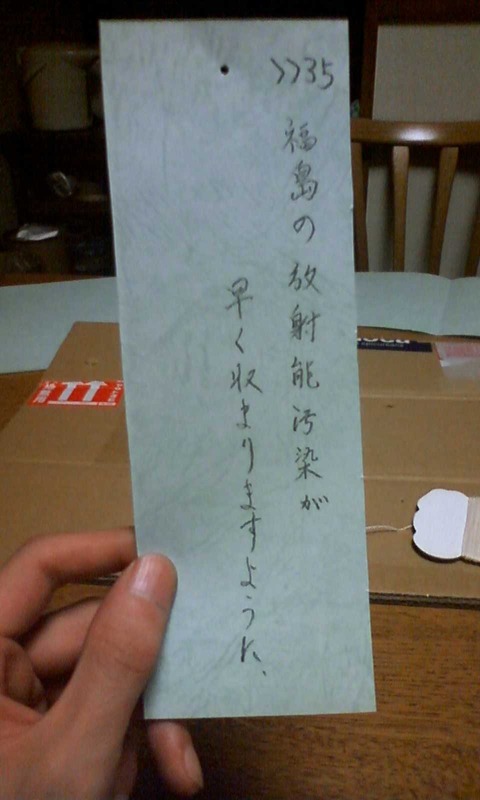 >>35
福島の放射能汚染が
早く収まりますように、